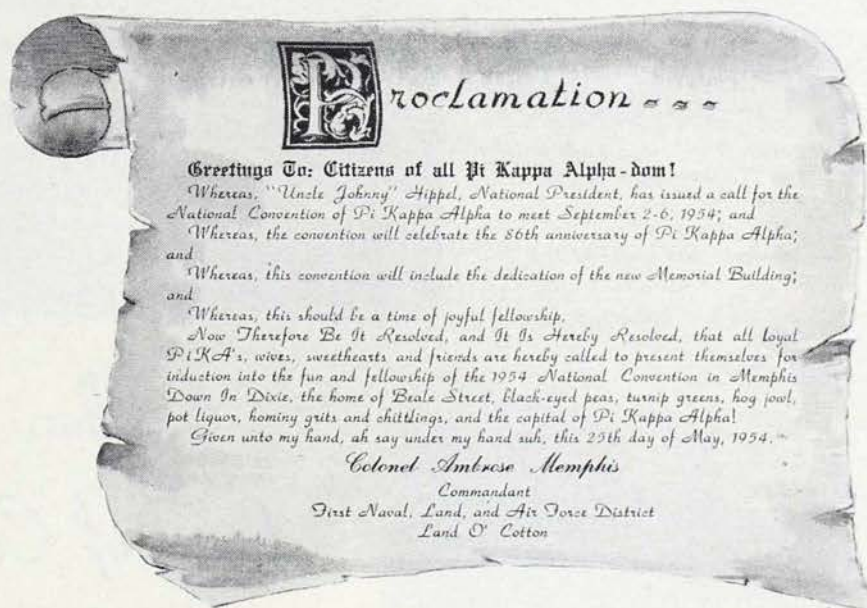 Proclamation - - -
Greetings To: Citizens of all Pi Kappa Alpha-dom!
Whereas, "Uncle Johnny" Hippel, National President, has issued a call for the
National Convention of Pi Kappa Alpha to meet September 2-6, 1954; and
Whereas, the convention will celebrate the 86th anniversary of Pi Kappa Alpha;
and
Whereas, this convention will include the dedication of the new Memorial Building;
and
Whereas, this should be a time of joyful fellowship,
Now Therefore Be It Resolved, and It Is Hereby Resolved, that all loyal
PiKA's, wives, sweethearts and friends are hereby called to present themselves for
induction into the fun and fellowship of the 1954 National Convention in Memphis
Down In Dixie, the home of Beale Street, black-eyed peas, turnip greens, hog jowl,
pot liquor, hominy grits and chittlings, and the capital of Pi Kappa Alpha!
Given unto my hand, ah say under my hand suh, this 25th day of May, 1954.
Colonel Ambrose Memphis
Commandant
First Naval, Land, and Air Force District
Land O' Cotton